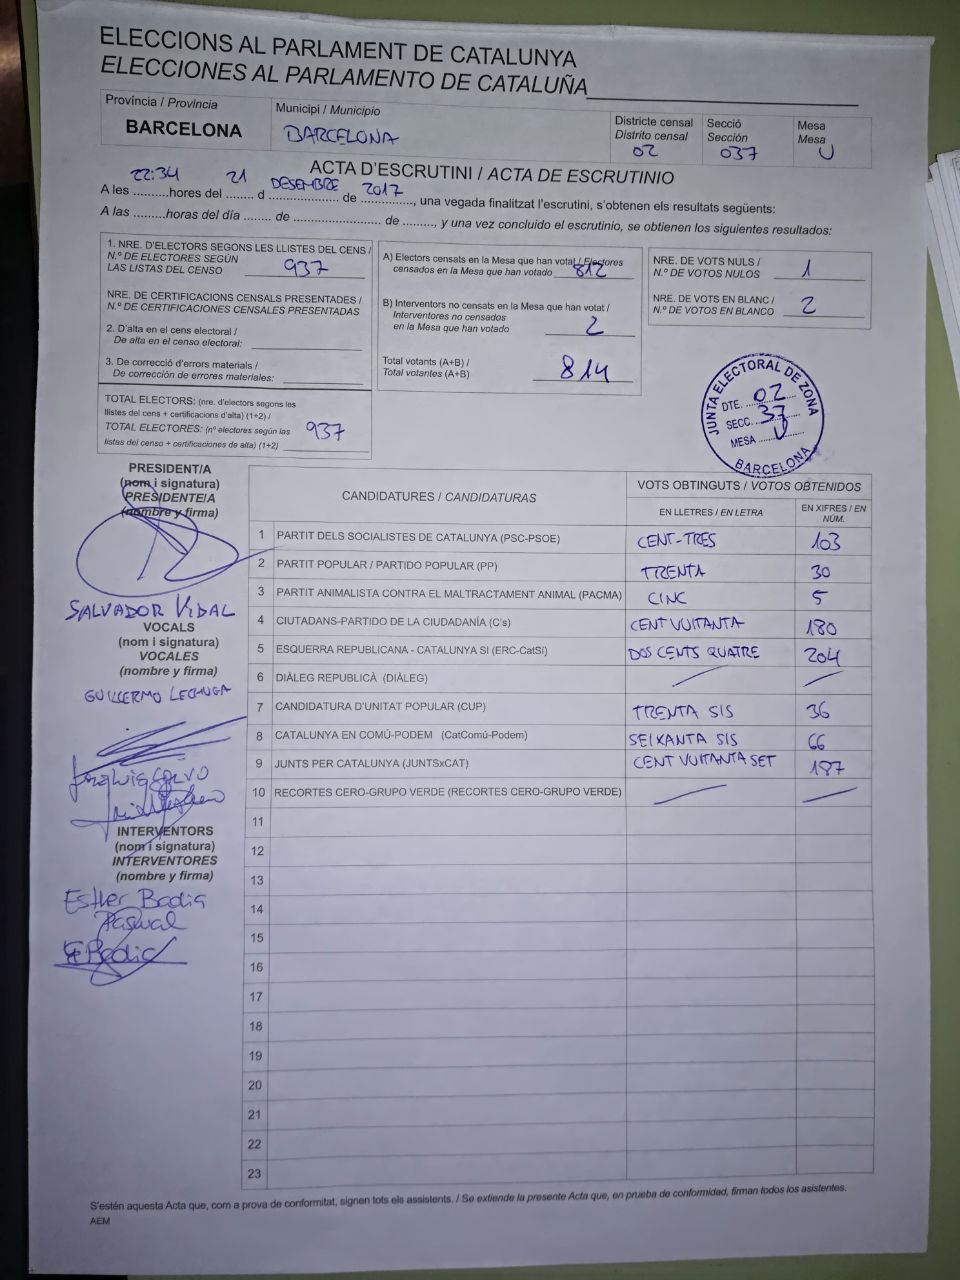 ELECCIONS AL PARLAMENT DE CATALUNYA
ELECCIONES AL PARLAMENTO DE CATALUÑA
Província / Provincia
BARCELONA
Municipi / Municipio
BARCELONA
Districte censal
Distrito censal
02
Secció
Sección
037
Mesa
Mesa
U
ACTA D'ESCRUTINI / ACTA DE ESCRUTINIO
A les 22:34 hores del 21 d DESEMBRE de 2017, una vegada finalitzat l'escrutini, s'obtenen els resultats següents:
A las .........horas del día ....... de ...................... de ........, y una vez concluido el escrutinio, se obtienen los siguientes resultados:
1. NRE. D'ELECTORS SEGONS LES LLISTES DEL CENS /
N.º DE ELECTORES SEGÚN
LAS LISTAS DEL CENSO 937
NRE. DE CERTIFICACIONS CENSALS PRESENTADES /
N.º DE CERTIFICACIONES CENSALES PRESENTADAS
2. D'alta en el cens electoral /
De alta en el censo electoral:
3. De correcció d'errors materials /
De corrección de errores materiales:
TOTAL ELECTORS: (nre. d'electors segons les
llistes del cens + certificacions d'alta) (1+2) /
TOTAL ELECTORES: (nº electores según las
listas del censo + certificaciones de alta) (1+2)
937
A) Electors censats en la Mesa que han votat / Electores
censados en la Mesa que han votado 812
B) Interventors no censats en la Mesa que han votat /
Interventores no censados
en la Mesa que han votado 2
Total votants (A+B) /
Total votantes (A+B) 814
NRE. DE VOTS NULS /
N.º DE VOTOS NULOS 1
NRE. DE VOTS EN BLANC /
N.º DE VOTOS EN BLANCO 2
JUNTA ELECTORAL DE ZONA
DTE. 02
SECC. 37
MESA U
BARCELONA
PRESIDENT/A
(nom i signatura)
PRESIDENTE/A
(nombre y firma)
SALVADOR VIDAL
VOCALS
(nom i signatura)
VOCALES
(nombre y firma)
GUILLERMO LECHUGA
INTERVENTORS
(nom i signatura)
INTERVENTORES
(nombre y firma)
Esther Badia
Pascual
CANDIDATURES / CANDIDATURAS
VOTS OBTINGUTS / VOTOS OBTENIDOS
EN LLETRES / EN LETRA
EN XIFRES / EN NÚM.
1 PARTIT DELS SOCIALISTES DE CATALUNYA (PSC-PSOE) CENT-TRES 103
2 PARTIT POPULAR / PARTIDO POPULAR (PP) TRENTA 30
3 PARTIT ANIMALISTA CONTRA EL MALTRACTAMENT ANIMAL (PACMA) CINC 5
4 CIUTADANS-PARTIDO DE LA CIUDADANÍA (C's) CENT VUITANTA 180
5 ESQUERRA REPUBLICANA - CATALUNYA SI (ERC-CatSí) DOS CENTS QUATRE 204
6 DIÀLEG REPUBLICÀ (DIÀLEG)
7 CANDIDATURA D'UNITAT POPULAR (CUP) TRENTA SIS 36
8 CATALUNYA EN COMÚ-PODEM (CatComú-Podem) SEIXANTA SIS 66
9 JUNTS PER CATALUNYA (JUNTSxCAT) CENT VUITANTA SET 187
10 RECORTES CERO-GRUPO VERDE (RECORTES CERO-GRUPO VERDE)
11
12
13
14
15
16
17
18
19
20
21
22
23
S'estén aquesta Acta que, com a prova de conformitat, signen tots els assistents. / Se extiende la presente Acta que, en prueba de conformidad, firman todos los asistentes.
AEM